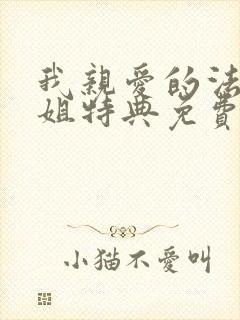 我親愛的法
姐特典免費
小猫不愛叫